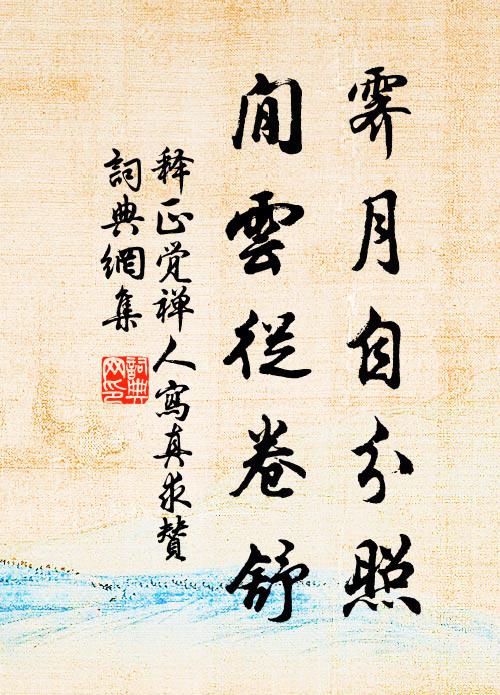 霽月自分照
閒雲從卷舒
释正觉禅人寫真求贊
詞典網集
詞典
网印